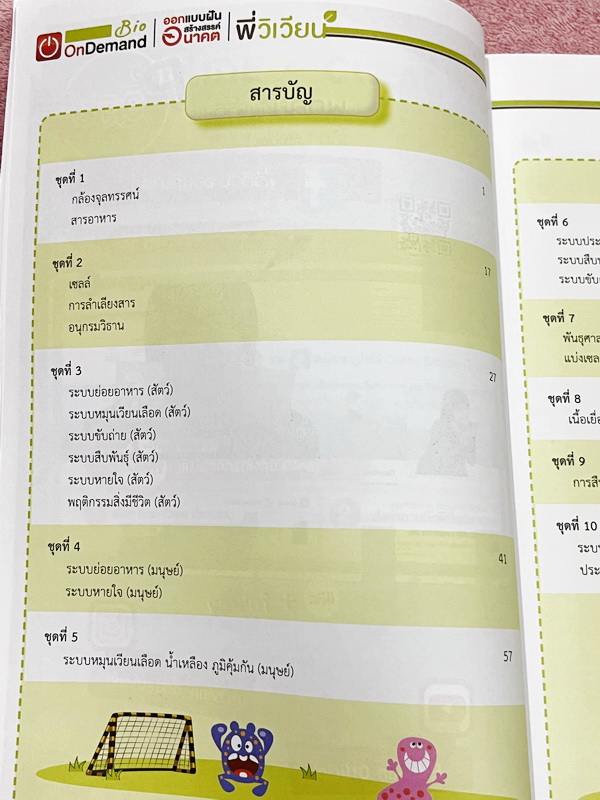 Bio
OnDemand
ออกแบบฝัน
สร้างสรรค์
อนาคต
พี่วิเวียน
สารบัญ
ชุดที่ 1
กล้องจุลทรรศน์
สารอาหาร
1
ชุดที่ 2
เซลล์
การลำเลียงสาร
อนุกรมวิธาน
17
ชุดที่ 3
ระบบย่อยอาหาร (สัตว์)
ระบบหมุนเวียนเลือด (สัตว์)
ระบบขับถ่าย (สัตว์)
ระบบสืบพันธุ์ (สัตว์)
ระบบหายใจ (สัตว์)
พฤติกรรมสิ่งมีชีวิต (สัตว์)
27
ชุดที่ 4
ระบบย่อยอาหาร (มนุษย์)
ระบบหายใจ (มนุษย์)
41
ชุดที่ 5
ระบบหมุนเวียนเลือด น้ำเหลือง ภูมิคุ้มกัน (มนุษย์)
57
ชุดที่ 6
ชุดที่ 7
แบ่งเซล
ชุดที่ 8
ชุดที่ 9
ชุดที่ 10